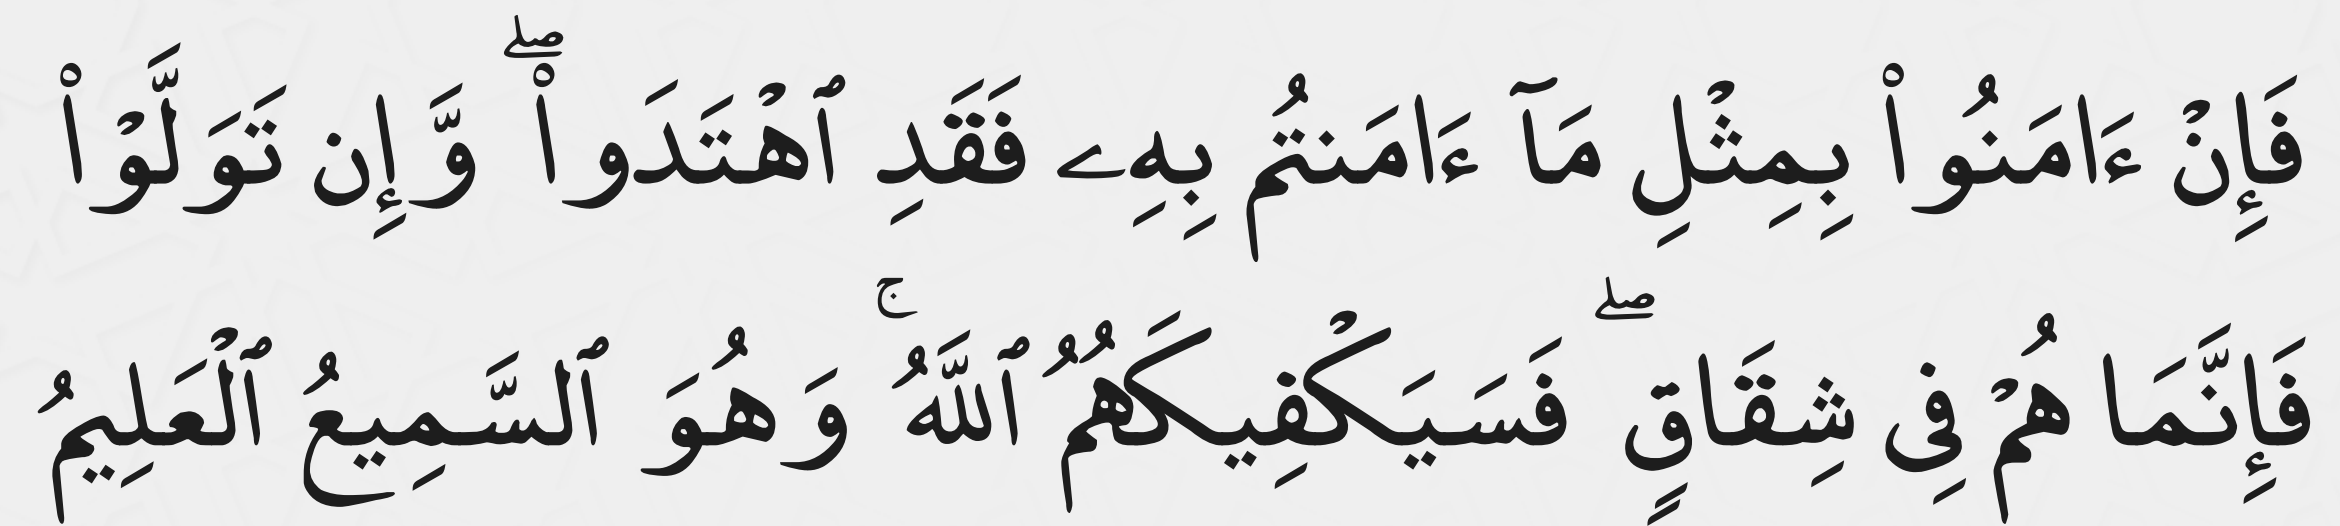 فَإِنْ ءَامَنُوا۟ بِمِثْلِ مَآ ءَامَنتُم بِهِۦ فَقَدِ ٱهْتَدَوا۟ ۖ وَّإِن تَوَلَّوْا۟
فَإِنَّمَا هُمْ فِى شِقَاقٍ ۖ فَسَيَكْفِيكَهُمُ ٱللَّهُ ۚ وَهُوَ ٱلسَّمِيعُ ٱلْعَلِيمُ